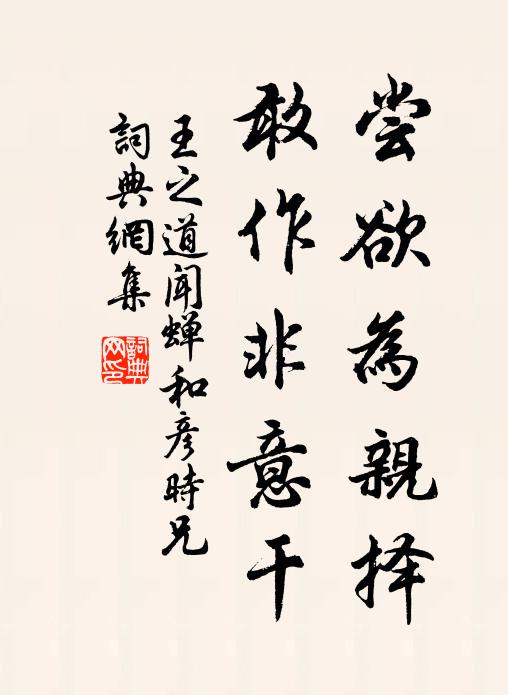 尝欲為親择
敢作非意干
王之道闻蝉和彦時兄
詞典網集
詞典網印